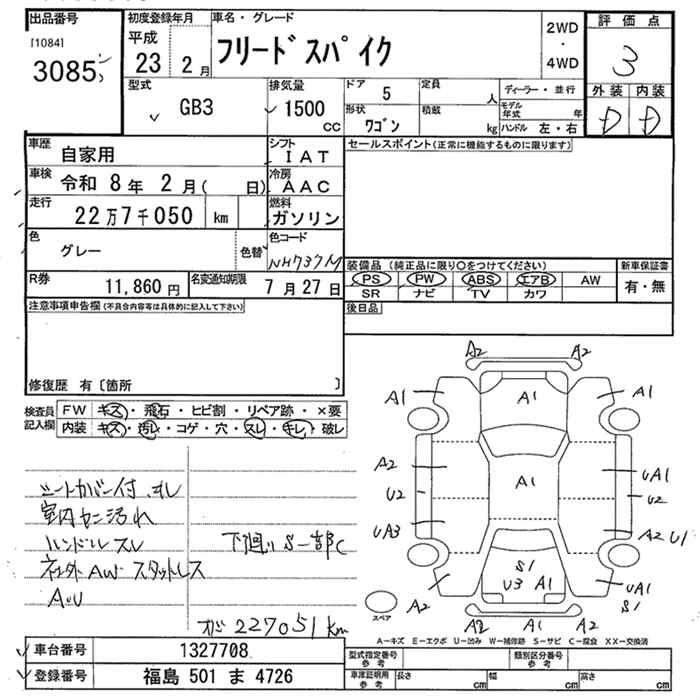 出品番号
[1084]
3085
初度登録年月
平成
23 2月
車名・グレード
フリードスパイク
2WD
・
4WD
評価点
3
外装 内装
D D
型式
GB3
排気量
1500
CC
ドア 5
定員 人
形状 ワゴン
積載 kg
ディーラー・並行
モデル年式 年
ハンドル 左・右
車歴
自家用
シフト
IAT
セールスポイント(正常に機能するものに限ります)
車検 令和 8年 2月( 日)
冷房
AAC
走行
22万7千050 km
燃料
ガソリン
色
グレー
色替
色コード
NH737M
装備品 (純正品に限り○をつけてください)
新車保証書
PS PW ABS エアB AW
SR ナビ TV カワ
有・無
R券
11,860円
名変通知期限
7月27日
後日品
注意事項申告欄(不具合内容等は具体的に記入して下さい)
修復歴 有〔箇所 〕
検査員
記入欄
FW キズ・飛石・ヒビ割・リペア跡・×要
内装 キズ・汚レ・コゲ・穴・スレ・キレ・破レ
シートカバー付 キレ
室内カニ汚れ
ハンドルスレ
社外AWスタットレス
A・U
下廻りS一部C
メーター227051km
A2 A2
A1 A1 A1
A2 A1 UA1
U2 U2
UA3 A2 U1
S1
U3 A1
A2 UA1
S1
A2 A1 A2
スペア
A-キズ E-エクボ U-凹み W-補修跡 S-サビ C-腐食 XX-交換済
車台番号
1327708
登録番号
福島 501 ま 4726
型式指定番号
参考
類別区分番号
参考
車庫証明用
参考
長さ cm
幅 cm
高さ cm